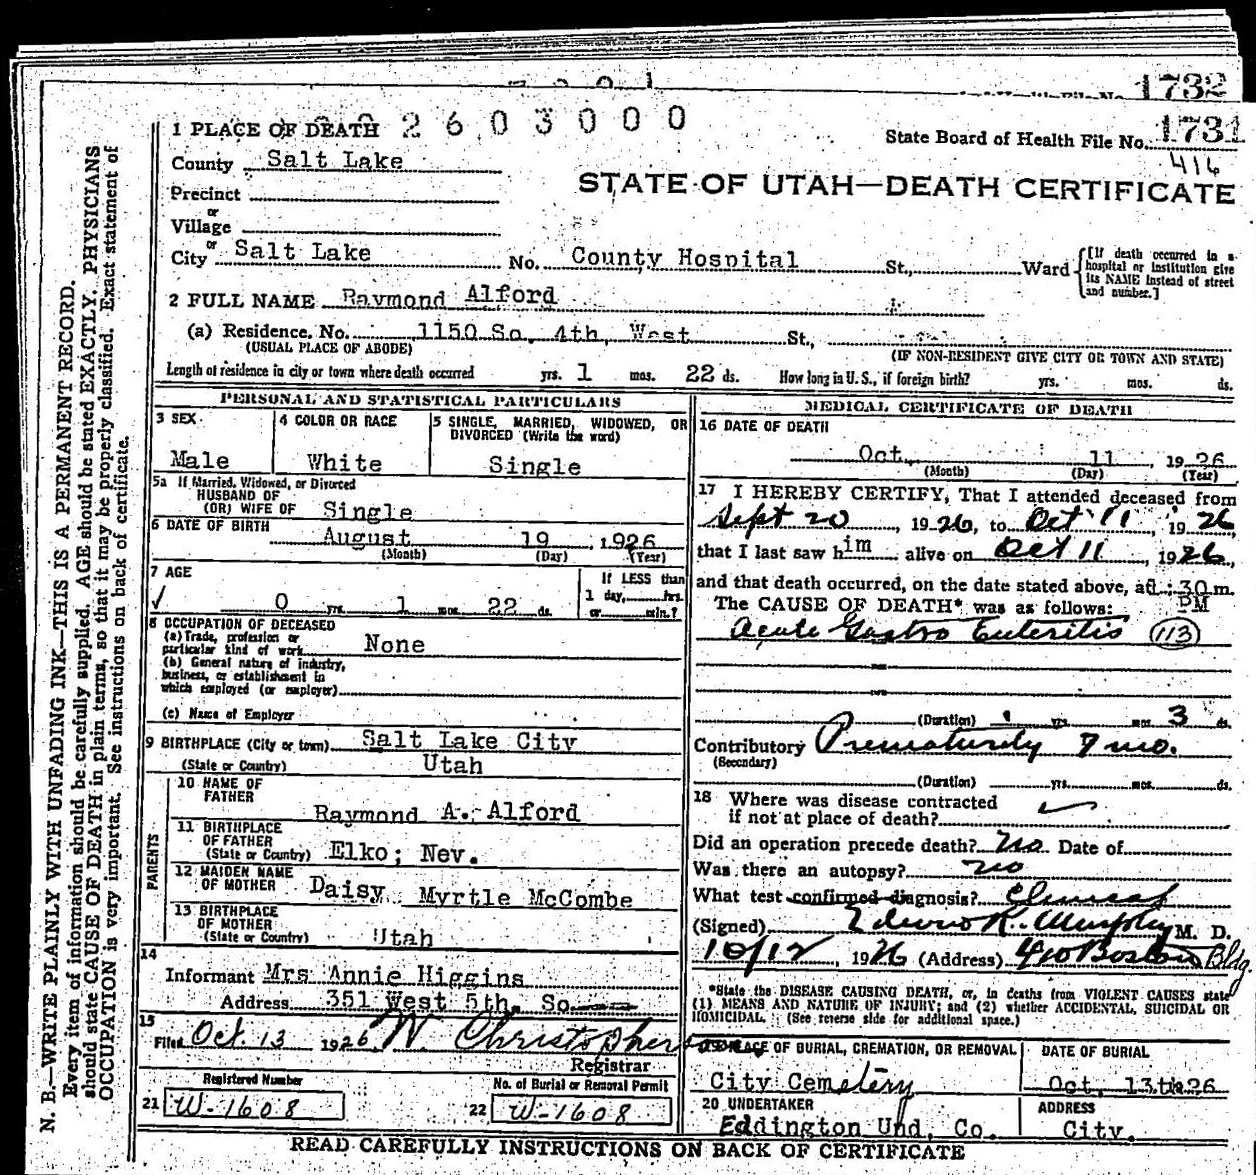 1732
1 PLACE OF DEATH 2 6 0 3 0 0 0
State Board of Health File No. 1731
416
County Salt Lake
STATE OF UTAH—DEATH CERTIFICATE
Precinct
or
Village
or
City Salt Lake No. County Hospital St., Ward
[If death occurred in a hospital or institution give its NAME instead of street and number.]
2 FULL NAME Raymond Alford
(a) Residence. No. 1150 So. 4th, West St.,
(USUAL PLACE OF ABODE) (IF NON-RESIDENT GIVE CITY OR TOWN AND STATE)
Length of residence in city or town where death occurred yrs. 1 mos. 22 ds. How long in U.S., if foreign birth? yrs. mos. ds.
PERSONAL AND STATISTICAL PARTICULARS
3 SEX
Male
4 COLOR OR RACE
White
5 SINGLE, MARRIED, WIDOWED, OR
DIVORCED (Write the word)
Single
5a If Married, Widowed, or Divorced
HUSBAND OF
(OR) WIFE OF Single
6 DATE OF BIRTH
August 19, 1926
(Month) (Day) (Year)
7 AGE
0 yrs. 1 mos. 22 ds.
If LESS than
1 day, hrs.
or min.?
8 OCCUPATION OF DECEASED
(a) Trade, profession or
particular kind of work None
(b) General nature of industry,
business, or establishment in
which employed (or employer)
(c) Name of Employer
9 BIRTHPLACE (City or town) Salt Lake City
(State or Country) Utah
PARENTS
10 NAME OF
FATHER
Raymond A. Alford
11 BIRTHPLACE
OF FATHER
(State or Country) Elko; Nev.
12 MAIDEN NAME
OF MOTHER Daisy Myrtle McCombe
13 BIRTHPLACE
OF MOTHER
(State or Country) Utah
14
Informant Mrs Annie Higgins
Address 351 West 5th, So
15
Filed Oct. 13 1926 W. Christopherson
Registrar
Registered Number
21 W-1608
No. of Burial or Removal Permit
22 W-1608
MEDICAL CERTIFICATE OF DEATH
16 DATE OF DEATH
Oct, 11 1926
(Month) (Day) (Year)
17 I HEREBY CERTIFY, That I attended deceased from
Sept 20, 1926, to Oct 11, 1926
that I last saw him alive on Oct 11, 1926,
and that death occurred, on the date stated above, at :30 m.
PM
The CAUSE OF DEATH* was as follows:
Acute Gastro Enteritis (113)
(Duration) yrs. mos. 3 ds.
Contributory Prematurely 7 mo.
(Secondary)
(Duration) yrs. mos. ds.
18 Where was disease contracted
if not at place of death?
Did an operation precede death? No Date of
Was there an autopsy? no
What test confirmed diagnosis? Clinical
(Signed) Edwin R. Murphy M. D.
10/12, 1926 (Address) 410 Boston Bldg.
*State the DISEASE CAUSING DEATH, or, in deaths from VIOLENT CAUSES state
(1) MEANS AND NATURE OF INJURY; and (2) whether ACCIDENTAL, SUICIDAL OR
HOMICIDAL. (See reverse side for additional space.)
PLACE OF BURIAL, CREMATION, OR REMOVAL
City Cemetery
DATE OF BURIAL
Oct, 13th 26
20 UNDERTAKER
Eddington Und, Co.
ADDRESS
City.
READ CAREFULLY INSTRUCTIONS ON BACK OF CERTIFICATE
N. B.—WRITE PLAINLY WITH UNFADING INK—THIS IS A PERMANENT RECORD.
Every item of information should be carefully supplied. AGE should be stated EXACTLY. PHYSICIANS
should state CAUSE OF DEATH in plain terms, so that it may be properly classified. Exact statement of
OCCUPATION is very important. See instructions on back of certificate.